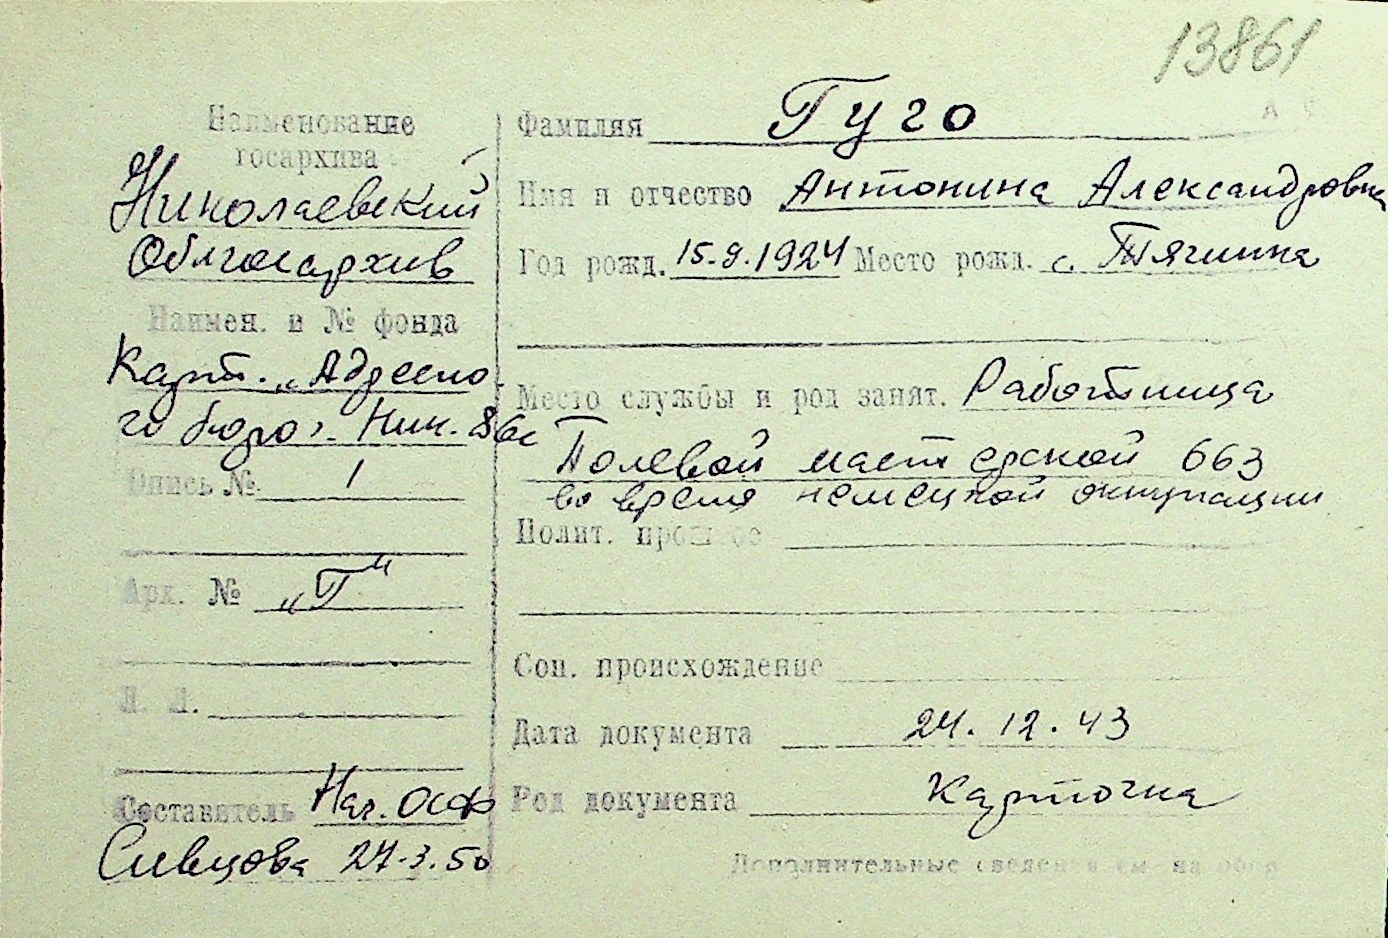 13861
Наименование
госархива
Николаевский
Облгосархив
Наимен. и № фонда
Карт. „Адресно
го бюро".
Опись № 1
Арх. № „Г"
Л. Л.
Составитель Нач. ОСФ
Сивцова 24.3.50
Фамилия Гуго
Имя и отчество Антонина Александровна
Год рожд. 15.9.1924 Место рожд. с. Тягинка
Место службы и род занят. Работница
Полевой мастерской 663
во время немецкой оккупации
Полит. прошлое
Соц. происхождение
Дата документа 24.12.43
Род документа Карточка
Дополнительные сведения см. на обор